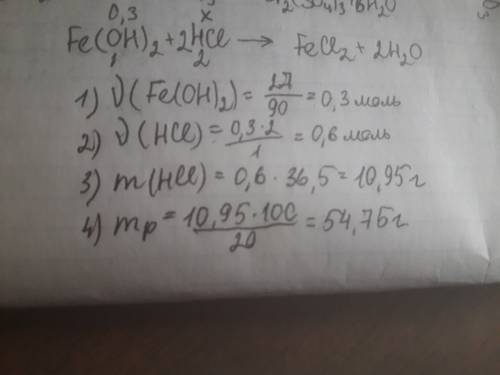 0,3 x
Fe(OH)₂ + 2HCl → FeCl₂ + 2H₂O
1 2
1) ν(Fe(OH)₂) = 27/90 = 0,3 моль
2) ν(HCl) = 0,3·2/1 = 0,6 моль
3) m(HCl) = 0,6 · 36,5 = 10,95 г
4) mр = 10,95·100/20 = 54,75г